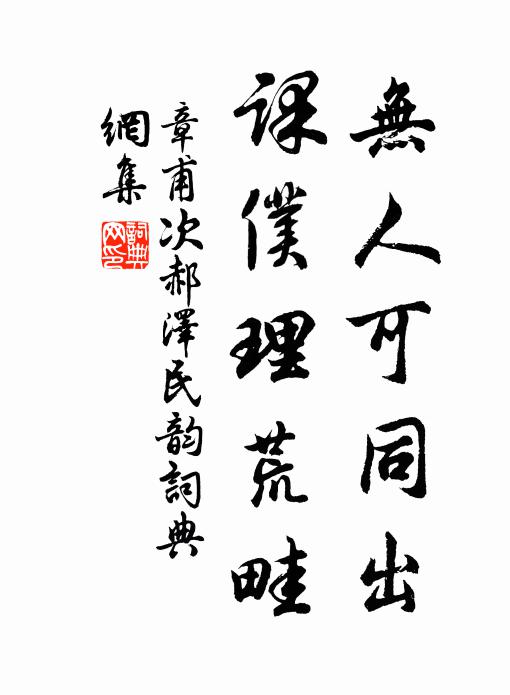 無人可同出
課僕理荒畦
章甫次郝澤民韵詞典
網集
詞典网印